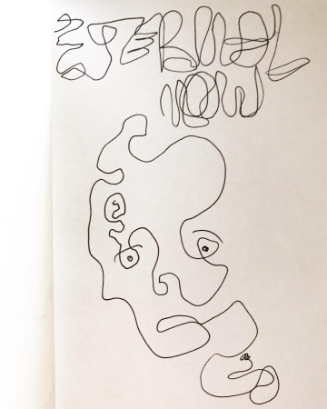 ETERNAL
NOW